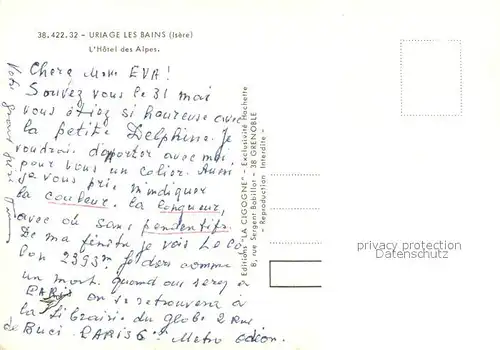 38.422.32 - URIAGE LES BAINS (Isère)
L'Hôtel des Alpes.
Chera Mme EVA!
Souvez vous le 31 mai
vous étiez si heureuse avec
la petite Delphine. Je
voudrais d'apporter avec moi,
pour vous un colier. Aussi
je vous prie m'indiquer
la couleur, la longueur,
avec ou sans pendentifs.
De ma fenêtre je vois Le Co
lon 2393m. Je dors comme
un mort. quand ou serez à
PARIS on se retrouvera à
la Librairie du globe 2 Rue
de Buci. PARIS 6e. Metro odéon.
Votre
Editions "LA CIGOGNE" - Exclusivité Hachette
8, rue Sergent Bobillot - 38 GRENOBLE
- Reproduction Interdite -
privacy protection
Datenschutz